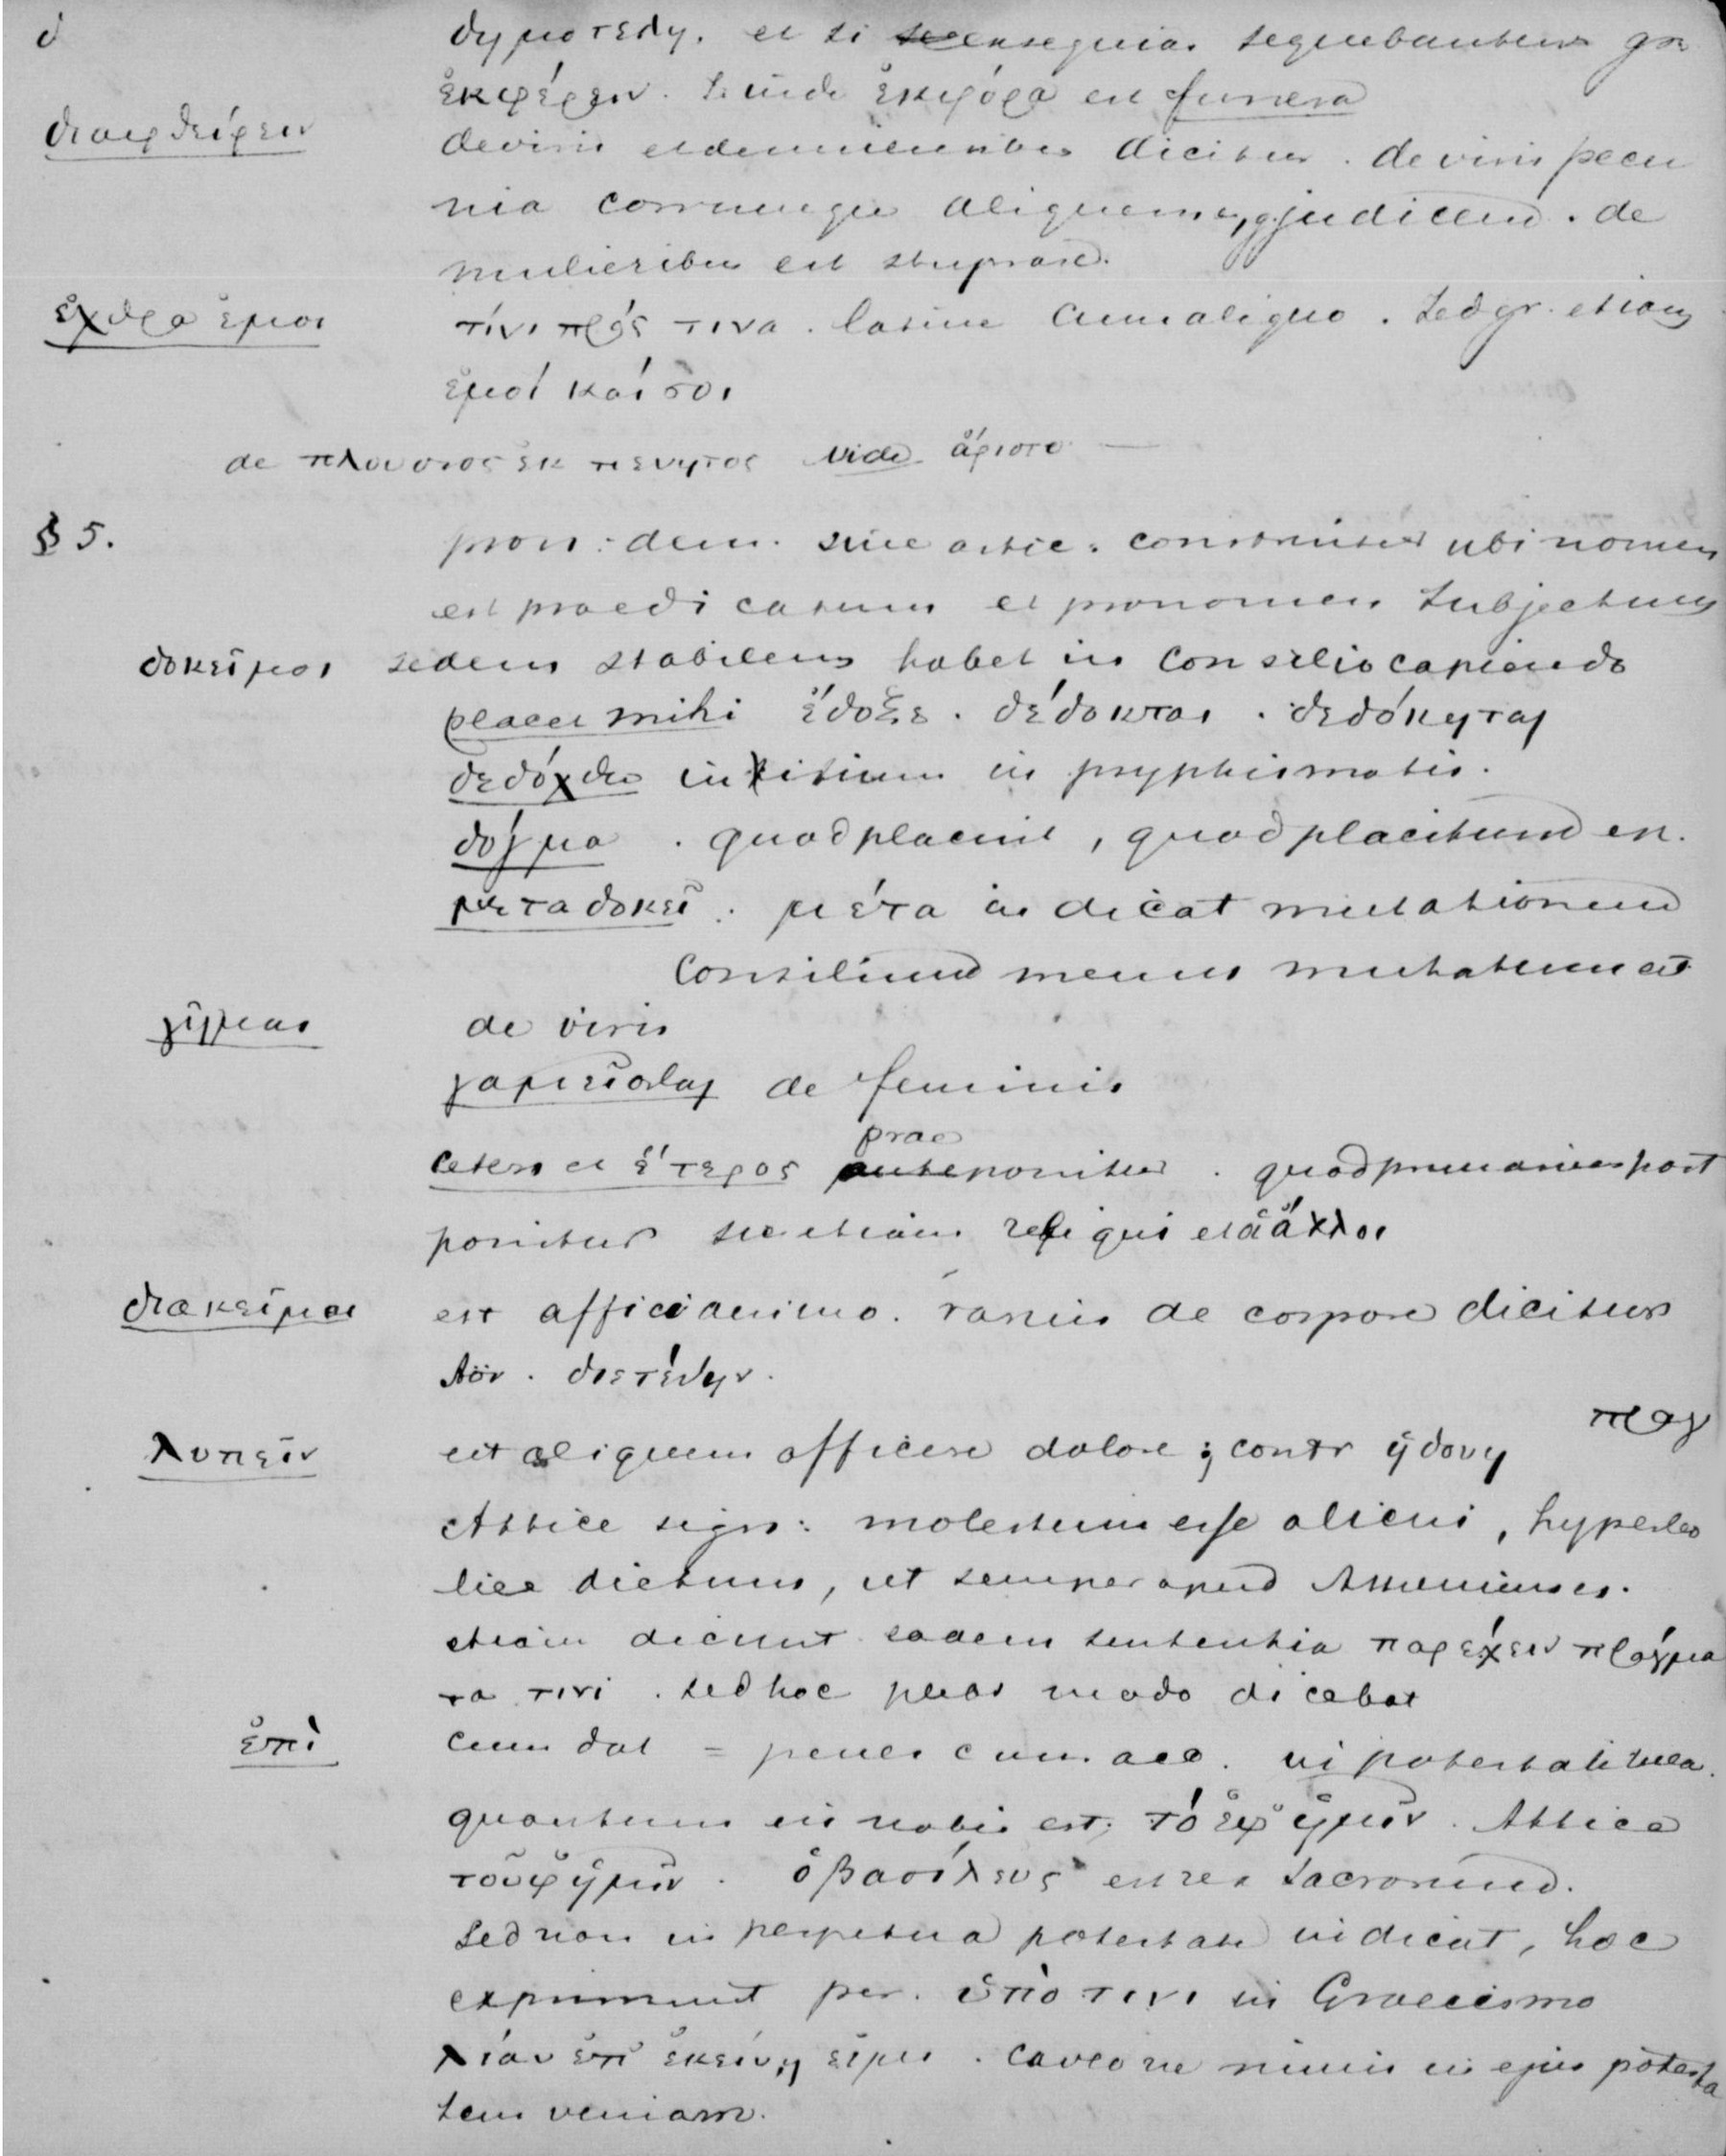 δημοτελη. et si exsequias sequebantur gr
ἐκφέρειν. ἐκφόρα est funera
διαφθείρειν de viris et de mulieribus dicitur. de viris pecu
nia corrumpere aliquem e, g. judicem. de
mulieribus est stuprare.
ἐχθρα ἐμοι τίνι πρός τινα. latine cum aliquo. sed gr. etiam
ἐμοί καί σοι
de πλουσιος ἐκ πενητος vide ἄριστο —
§ 5. pron: dem. sine artic: construitur ubi nomen
est praedicatum et pronomen subjectum
δοκεῖ μοι sedem stabilem habet in consilio capiendo
placet mihi ἔδοξε. δέδοκται. δεδόκηται
δεδόχθω initium in psyphismatis.
δόγμα. quod placuit, quod placitum est.
μεταδοκεῖ. μέτα indicat mutationem
consilium meum mutatum est
γῆμαι de viris
γαμεῖσθαι de feminis
prae
ceteri et ἕτερος anteponitur. quod primarium post
ponitur sic etiam reliqui et ἄλλοι
διακεῖμαι est affici animo. rarius de corpore dicitur
Aor. διετέθην.
πραγ
λυπεῖν est aliquem afficere dolore; contr ἡδονη
Attice sign: molestum esse alicui, hyperbo
lice dictum, ut semper apud Athenienses.
etiam dicunt eadem sententia παρέχειν πράγμα
τα τινι. sed hoc modo dicebat
ἐπὶ cum dat = penes cum acc. in potestate sua.
quantum in nobis est, τό ἐφ ἡμῖν. Attice
τοὐφ ἡμῖν. ὁ βασίλευς est rex sacrorum.
sed non in perpetua potestate indicat, hoc
exprimunt per. ὑπὸ τινι in Graecismo
λίαν ἐπ ἐκείνῃ εἰμι. caveo ne nimis in ejus potesta
tem veniam.